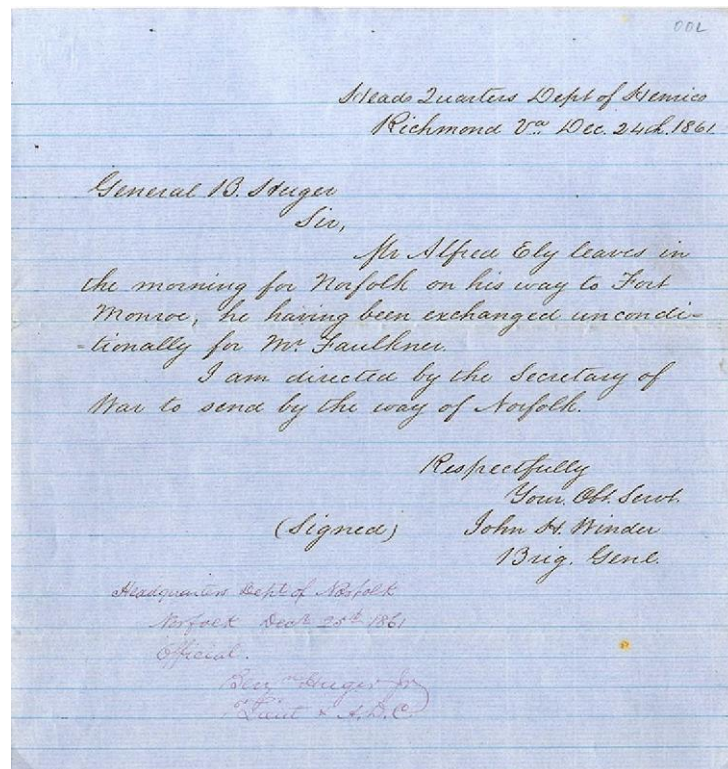 002
Head Quarters Dept of Henrico
Richmond Va Dec. 24th. 1861
General B. Huger
Sir,
Mr Alfred Ely leaves in
the morning for Norfolk on his way to Fort
Monroe, he having been exchanged uncondi-
-tionally for Mr. Faulkner.
I am directed by the Secretary of
War to send by the way of Norfolk.
Respectfully
Your Obt. Servt.
(Signed) John H. Winder
Brig. Genl.
Headquarters Dept of Norfolk
Norfolk Decr 25th 1861
Official.
Benjn Huger Jr
Lieut & A.D.C.